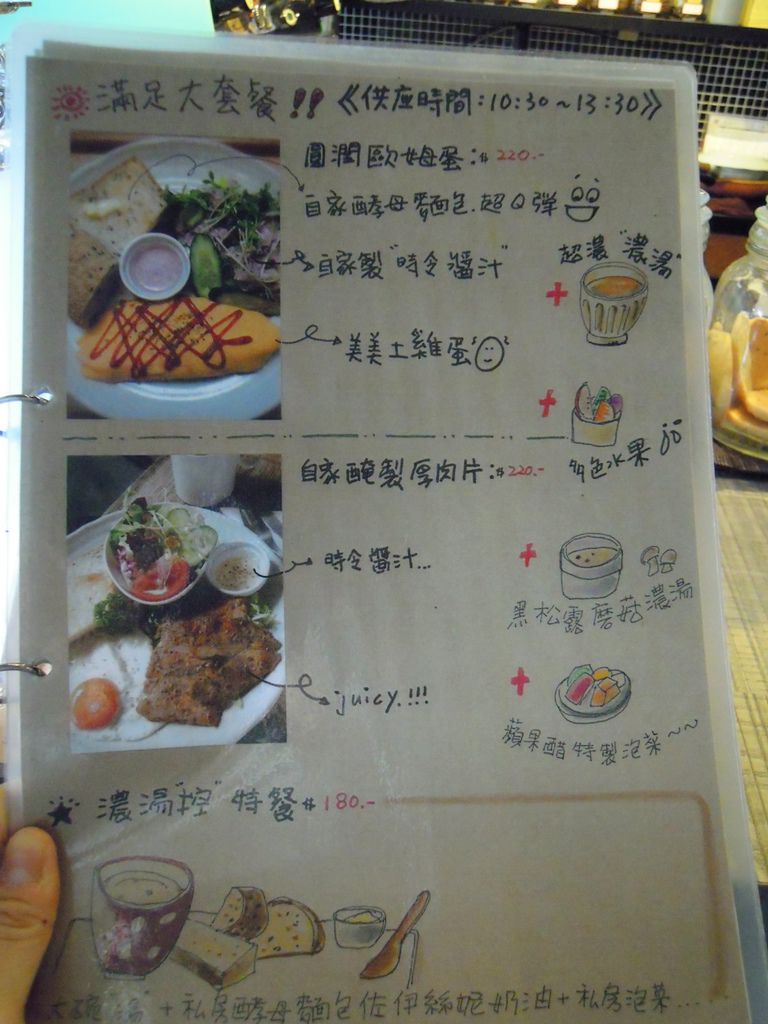 滿足大套餐!! 《供應時間:10:30~13:30》
圓潤歐姆蛋:$220.-
自家酵母麵包.超Q彈
自家製"時令醬汁"
超濃"濃湯"
+
美美土雞蛋
+
多色水果
自家醃製厚肉片:$220.-
時令醬汁...
+
黑松露蘑菇濃湯
+
juicy.!!!
蘋果醋特製泡菜~~
★ 濃湯"控"特餐$180.-
大碗"湯"+私房酵母麵包佐伊絲妮奶油+私房泡菜...